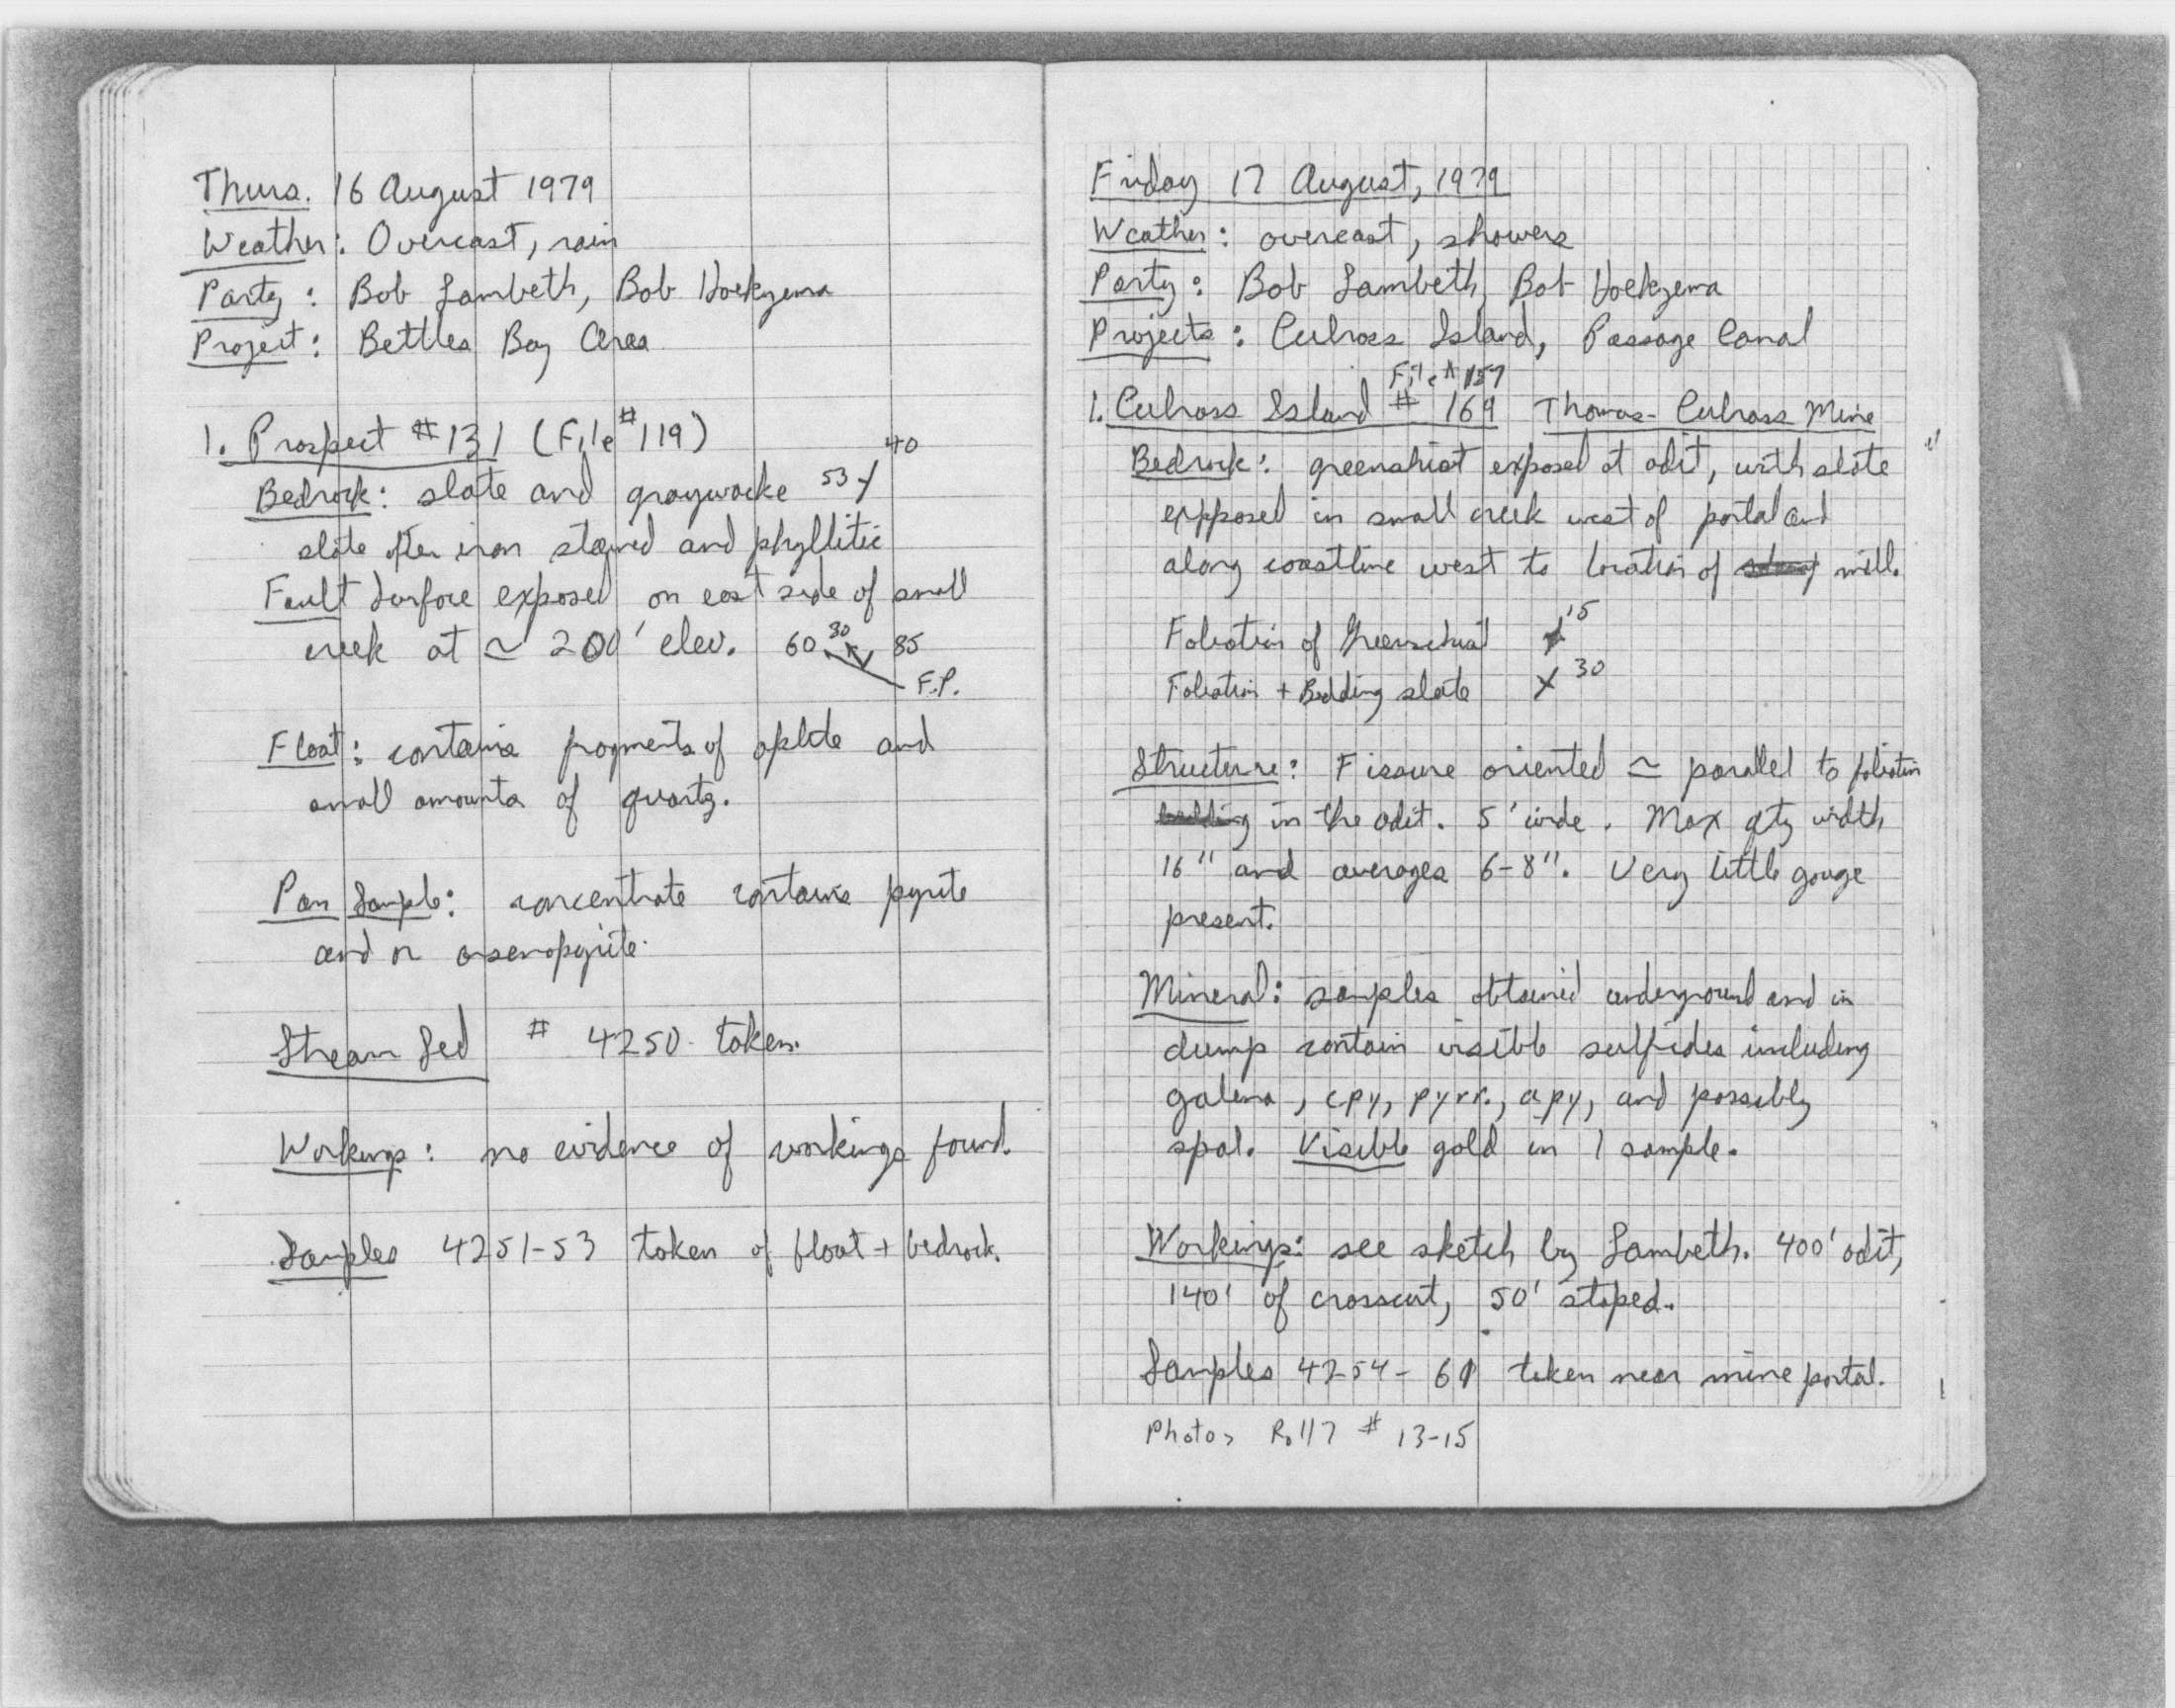 Thurs. 16 August 1979
Weather: Overcast, rain
Party: Bob Lambeth, Bob Hoekzema
Project: Bettles Bay Area
1. Prospect #131 (File #119)
40
Bedrock: slate and graywacke 53
slate often iron stained and phyllitic
Fault Surface exposed on east side of small
creek at ≃ 200' elev. 60 30 85
F.P.
Float: contains fragments of aplite and
small amounts of quartz.
Pan Sample: concentrate contains pyrite
and or arsenopyrite.
Stream Sed # 4250 taken.
Workings: no evidence of workings found.
Samples 4251-53 taken of float + bedrock.
Friday 17 August, 1979
Weather: overcast, showers
Party: Bob Lambeth, Bob Hoekzema
Projects: Culross Island, Passage Canal
File # 157
1. Culross Island # 169 Thomas-Culross Mine
Bedrock: greenshist exposed at adit, with slate
expposed in small creek west of portal and
along coastline west to location of mill.
Foliation of Greenschist 15
Foliation + Bedding slate 30
Structure: Fissure oriented ≃ parallel to foliation
bedding in the adit. 5' wide. Max qtz width
16" and averages 6-8". Very little gouge
present.
Mineral: samples obtained underground and in
dump contain visible sulfides including
galena, cpy, pyrr., apy, and possibly
spal. Visible gold in 1 sample.
Workings: see sketch by Lambeth. 400' adit,
140' of crosscut, 50' stoped.
Samples 4254-61 taken near mine portal.
Photos Roll 7 # 13-15